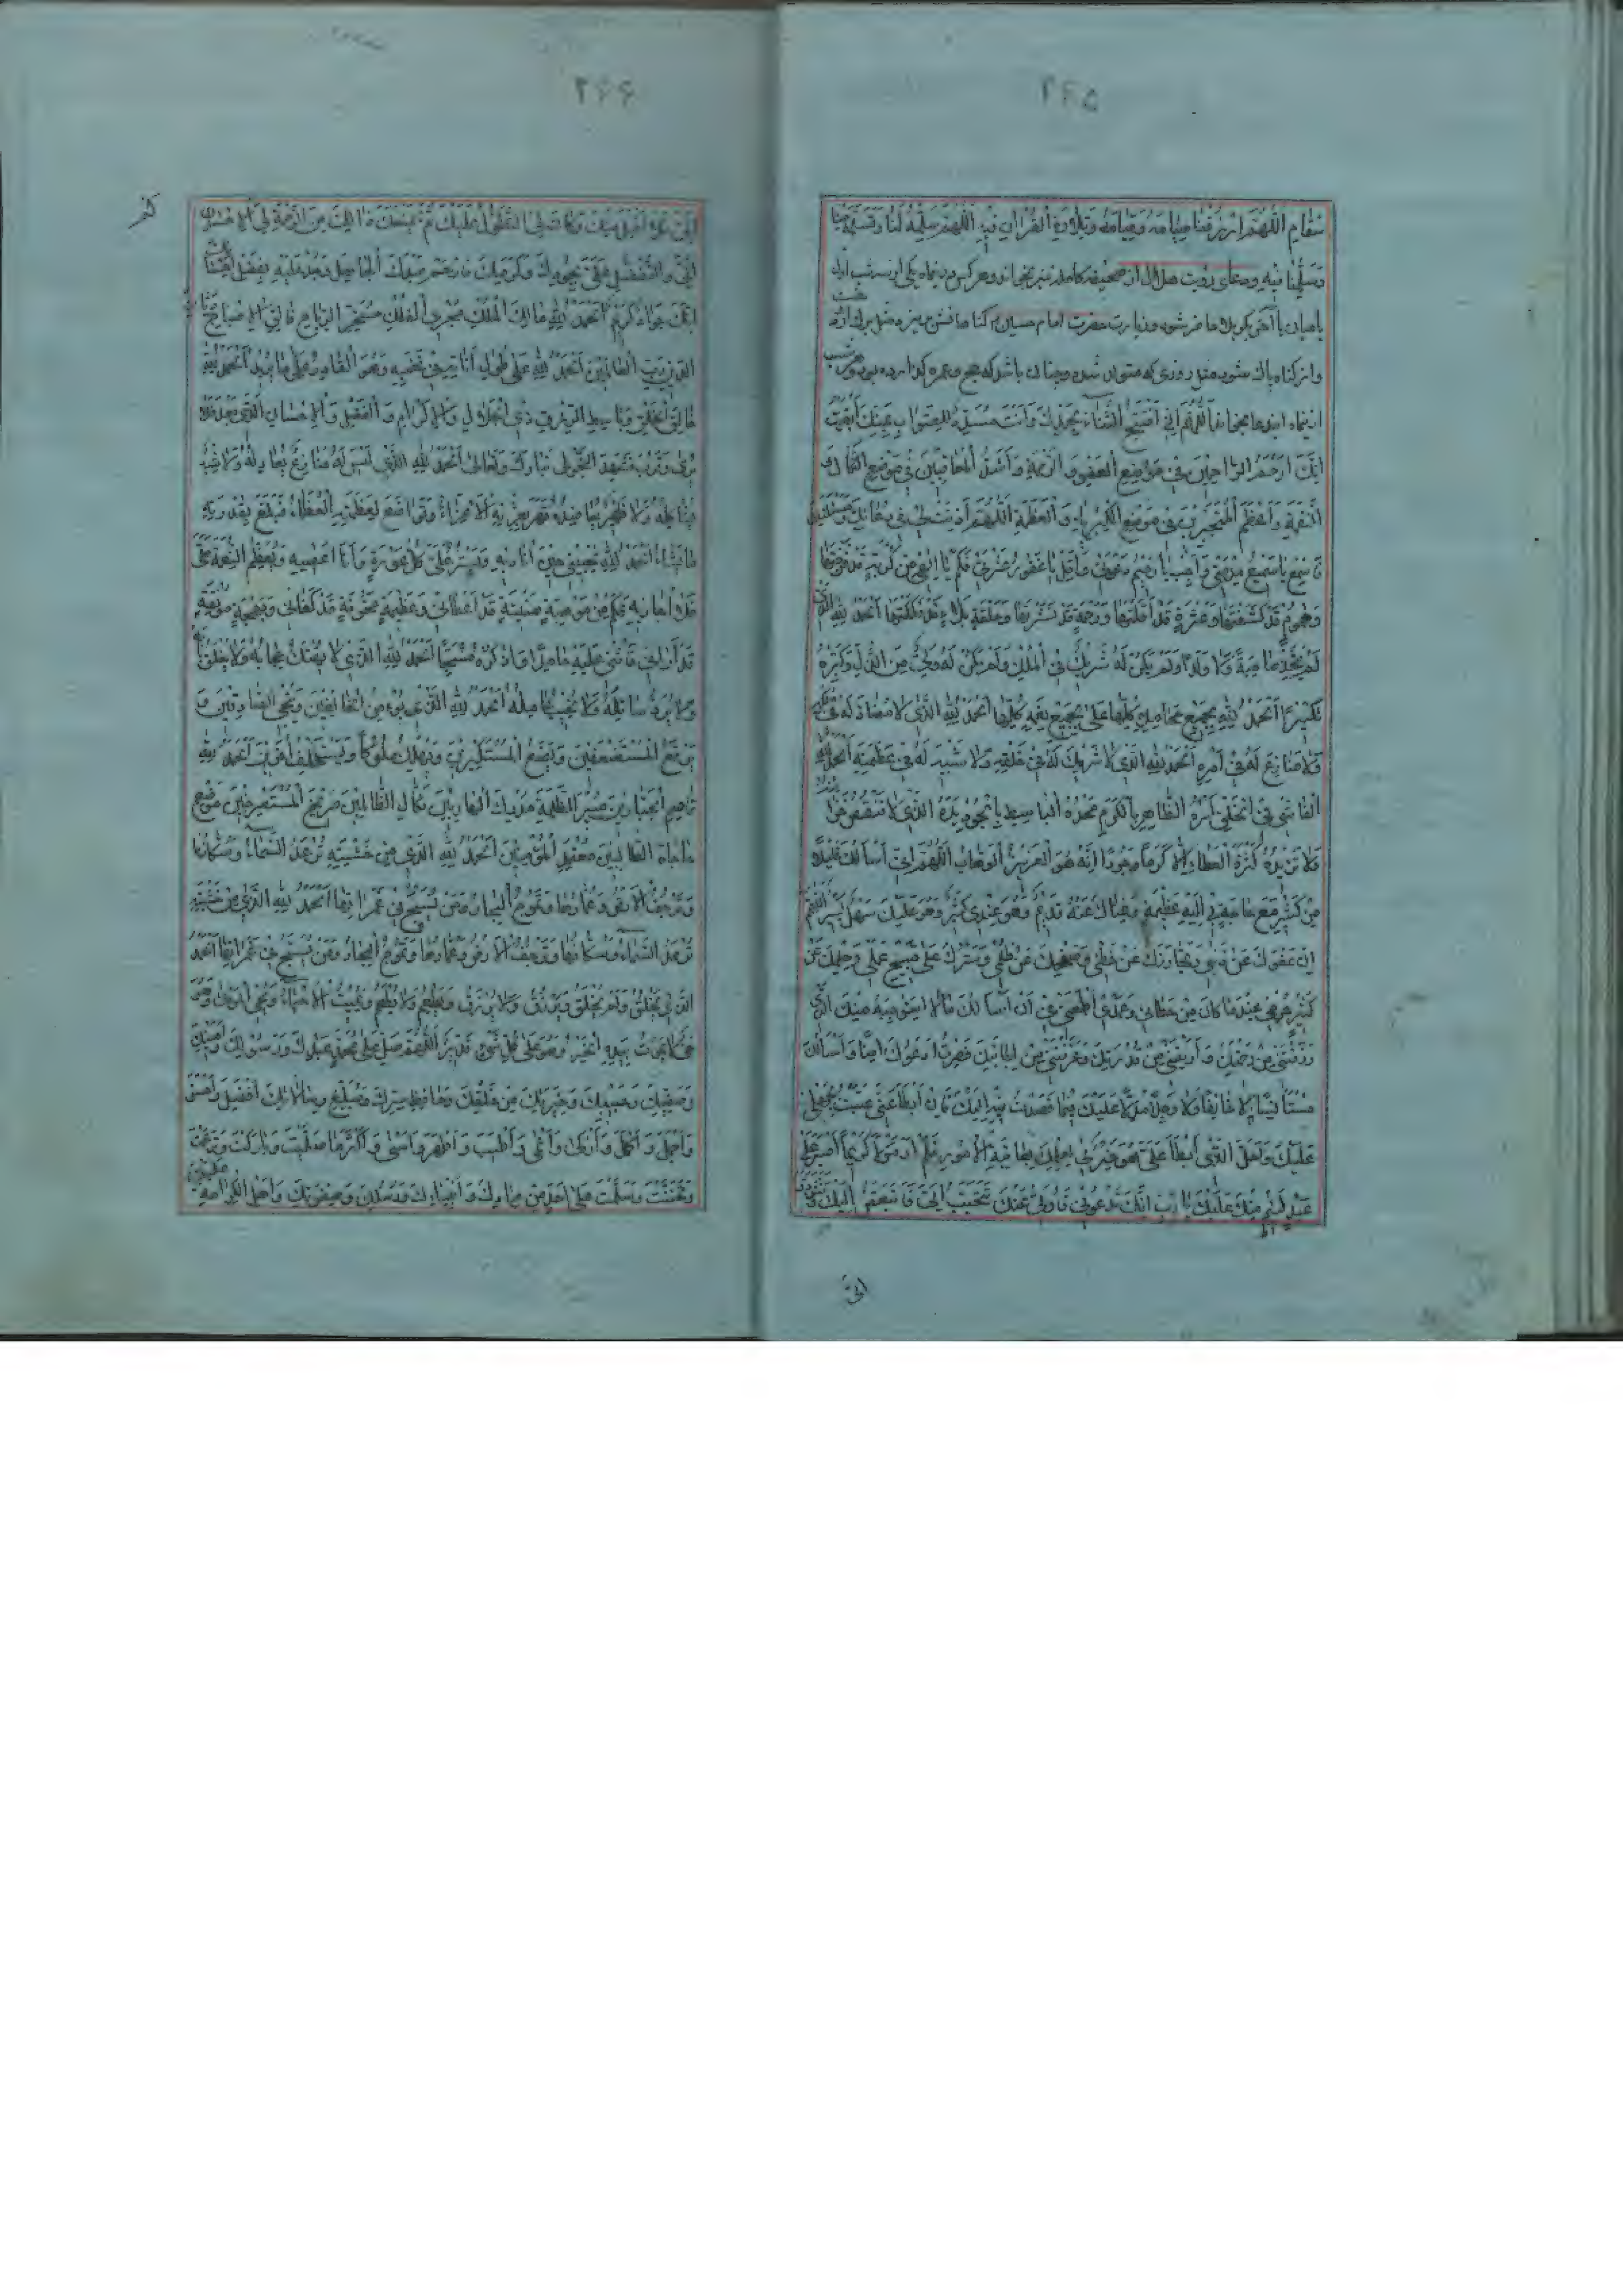 ۲۶۵
سقام اللهم ارزقنا صیامه وقیامه وتلاوة القران فیه اللهم سلمه لنا وتسلمه منا
وسلمنا فیه ودعای رؤیت هلال از صحیفه کامله نیز بخواند وهر کس در
حاضر شود وزیارت حضرت امام حسین
شود مثل روزی که متولد شده وچنان باشد که حج وعمره کرده
اللهم انی افتتح الثناء بحمدک وانت مسدد للصواب بمنک ایقنت
انک ارحم الراحمین فی موضع العفو والرحمة واشد المعاقبین فی موضع النکال و
النقمة واعظم المتجبرین فی موضع الکبریاء والعظمة اللهم اذنت لی فی دعائک ومسئلتک
فاسمع یا سمیع مدحتی واجب یا رحیم دعوتی واقل یا غفور عثرتی فکم یا الهی من کربة قد فرجتها
وهموم قد کشفتها وعثرة قد اقلتها ورحمة قد نشرتها وحلقة بلاء قد فککتها الحمد لله الذی
لم یتخذ صاحبة ولا ولدا ولم یکن له شریک فی الملک ولم یکن له ولی من الذل وکبره
تکبیرا الحمد لله بجمیع محامده کلها علی جمیع نعمه کلها الحمد لله الذی لا مضاد له فی ملکه
ولا منازع له فی امره الحمد لله الذی لا شریک له فی خلقه ولا شبیه له فی عظمته الحمد لله
الفاشی فی الخلق امره الظاهر بالکرم مجده الباسط بالجود یده الذی لا تنقص خزائنه
ولا تزیده کثرة العطاء الا کرما وجودا انه هو العزیز الوهاب اللهم انی اسألک قلیلا
من کثیر مع حاجة بی الیه عظیمة وغناک عنه قدیم وهو عندی کثیر وهو علیک سهل یسیر اللهم
ان عفوک عن ذنبی وتجاوزک عن خطیئتی وصفحک عن ظلمی وسترک علی قبیح عملی وحلمک عن
کثیر جرمی عندما کان من خطائی وعمدی اطمعنی فی ان اسألک ما لا استوجبه منک الذی
رزقتنی من رحمتک واریتنی من قدرتک وعرفتنی من اجابتک فصرت ادعوک امنا واسألک
مستأنسا لا خائفا ولا وجلا مدلا علیک فیما قصدت فیه الیک فان ابطأ عنی عتبت بجهلی
علیک ولعل الذی ابطأ عنی هو خیر لی لعلمک بعاقبة الامور فلم ار مولا کریما اصبر علی
عبد لئیم منک علی یا رب انک تدعونی فاولی عنک وتتحبب الی فاتبغض الیک وتتودد
الی
۲۶۶
الی فلا اقبل منک وکان لی التطول علیک ثم لم یمنعک ذلک من الرحمة لی والاحسان
الی والتفضل علی بجودک وکرمک فارحم عبدک الجاهل وجد علیه بفضل احسانک
انک جواد کریم الحمد لله مالک الملک مجری الفلک مسخر الریاح فالق الاصباح دیان
الدین رب العالمین الحمد لله علی طول اناته فی غضبه وهو القادر علی ما یرید الحمد لله
خالق الخلق وباسط الرزق ذی الجلال والاکرام والفضل والاحسان الذی بعد فلا
یری وقرب فشهد النجوی تبارک وتعالی الحمد لله الذی لیس له منازع یعادله ولا شبیه
یشاکله ولا ظهیر یعاضده قهر بعزته الاعزاء وتواضع لعظمته العظماء فبلغ بقدرته
ما یشاء الحمد لله الذی یجیبنی حین انادیه ویستر علی کل عورة وانا اعصیه ویعظم النعمة علی
فلا اجازیه فکم من موهبة هنیئة قد اعطانی وعظیمة مخوفة قد کفانی وبهجة مونقة
قد ارانی فاثنی علیه حامدا واذکره مسبحا الحمد لله الذی لا یهتک حجابه ولا یغلق بابه
ولا یرد سائله ولا یخیب امله الحمد لله الذی یؤمن الخائفین وینجی الصادقین و
یرفع المستضعفین ویضع المستکبرین ویهلک ملوکا ویستخلف اخرین الحمد لله
قاصم الجبارین مبیر الظلمة مدرک الهاربین نکال الظالمین صریخ المستصرخین موضع
حاجات الطالبین معتمد المؤمنین الحمد لله الذی من خشیته ترعد السماء وسکانها
وترجف الارض وعمارها وتموج البحار ومن یسبح فی غمراتها الحمد لله الذی من خشیته
ترعد السماء وسکانها وترجف الارض وعمارها وتموج البحار ومن یسبح فی غمراتها الحمد
الذی یخلق ولم یخلق ویرزق ولا یرزق ویطعم ولا یطعم ویمیت الاحیاء ویحیی الموتی وهو
حی لا یموت بیده الخیر وهو علی کل شیء قدیر اللهم صل علی محمد عبدک ورسولک وامینک
وصفیک وحبیبک وخیرتک من خلقک وحافظ سرک ومبلغ رسالاتک افضل واحسن
واجمل واکمل وازکی وانمی واطیب واطهر واسنی واکثر ما صلیت وبارکت وترحمت
وتحننت وسلمت علی احد من عبادک وانبیائک ورسلک وصفوتک واهل الکرامة علیک